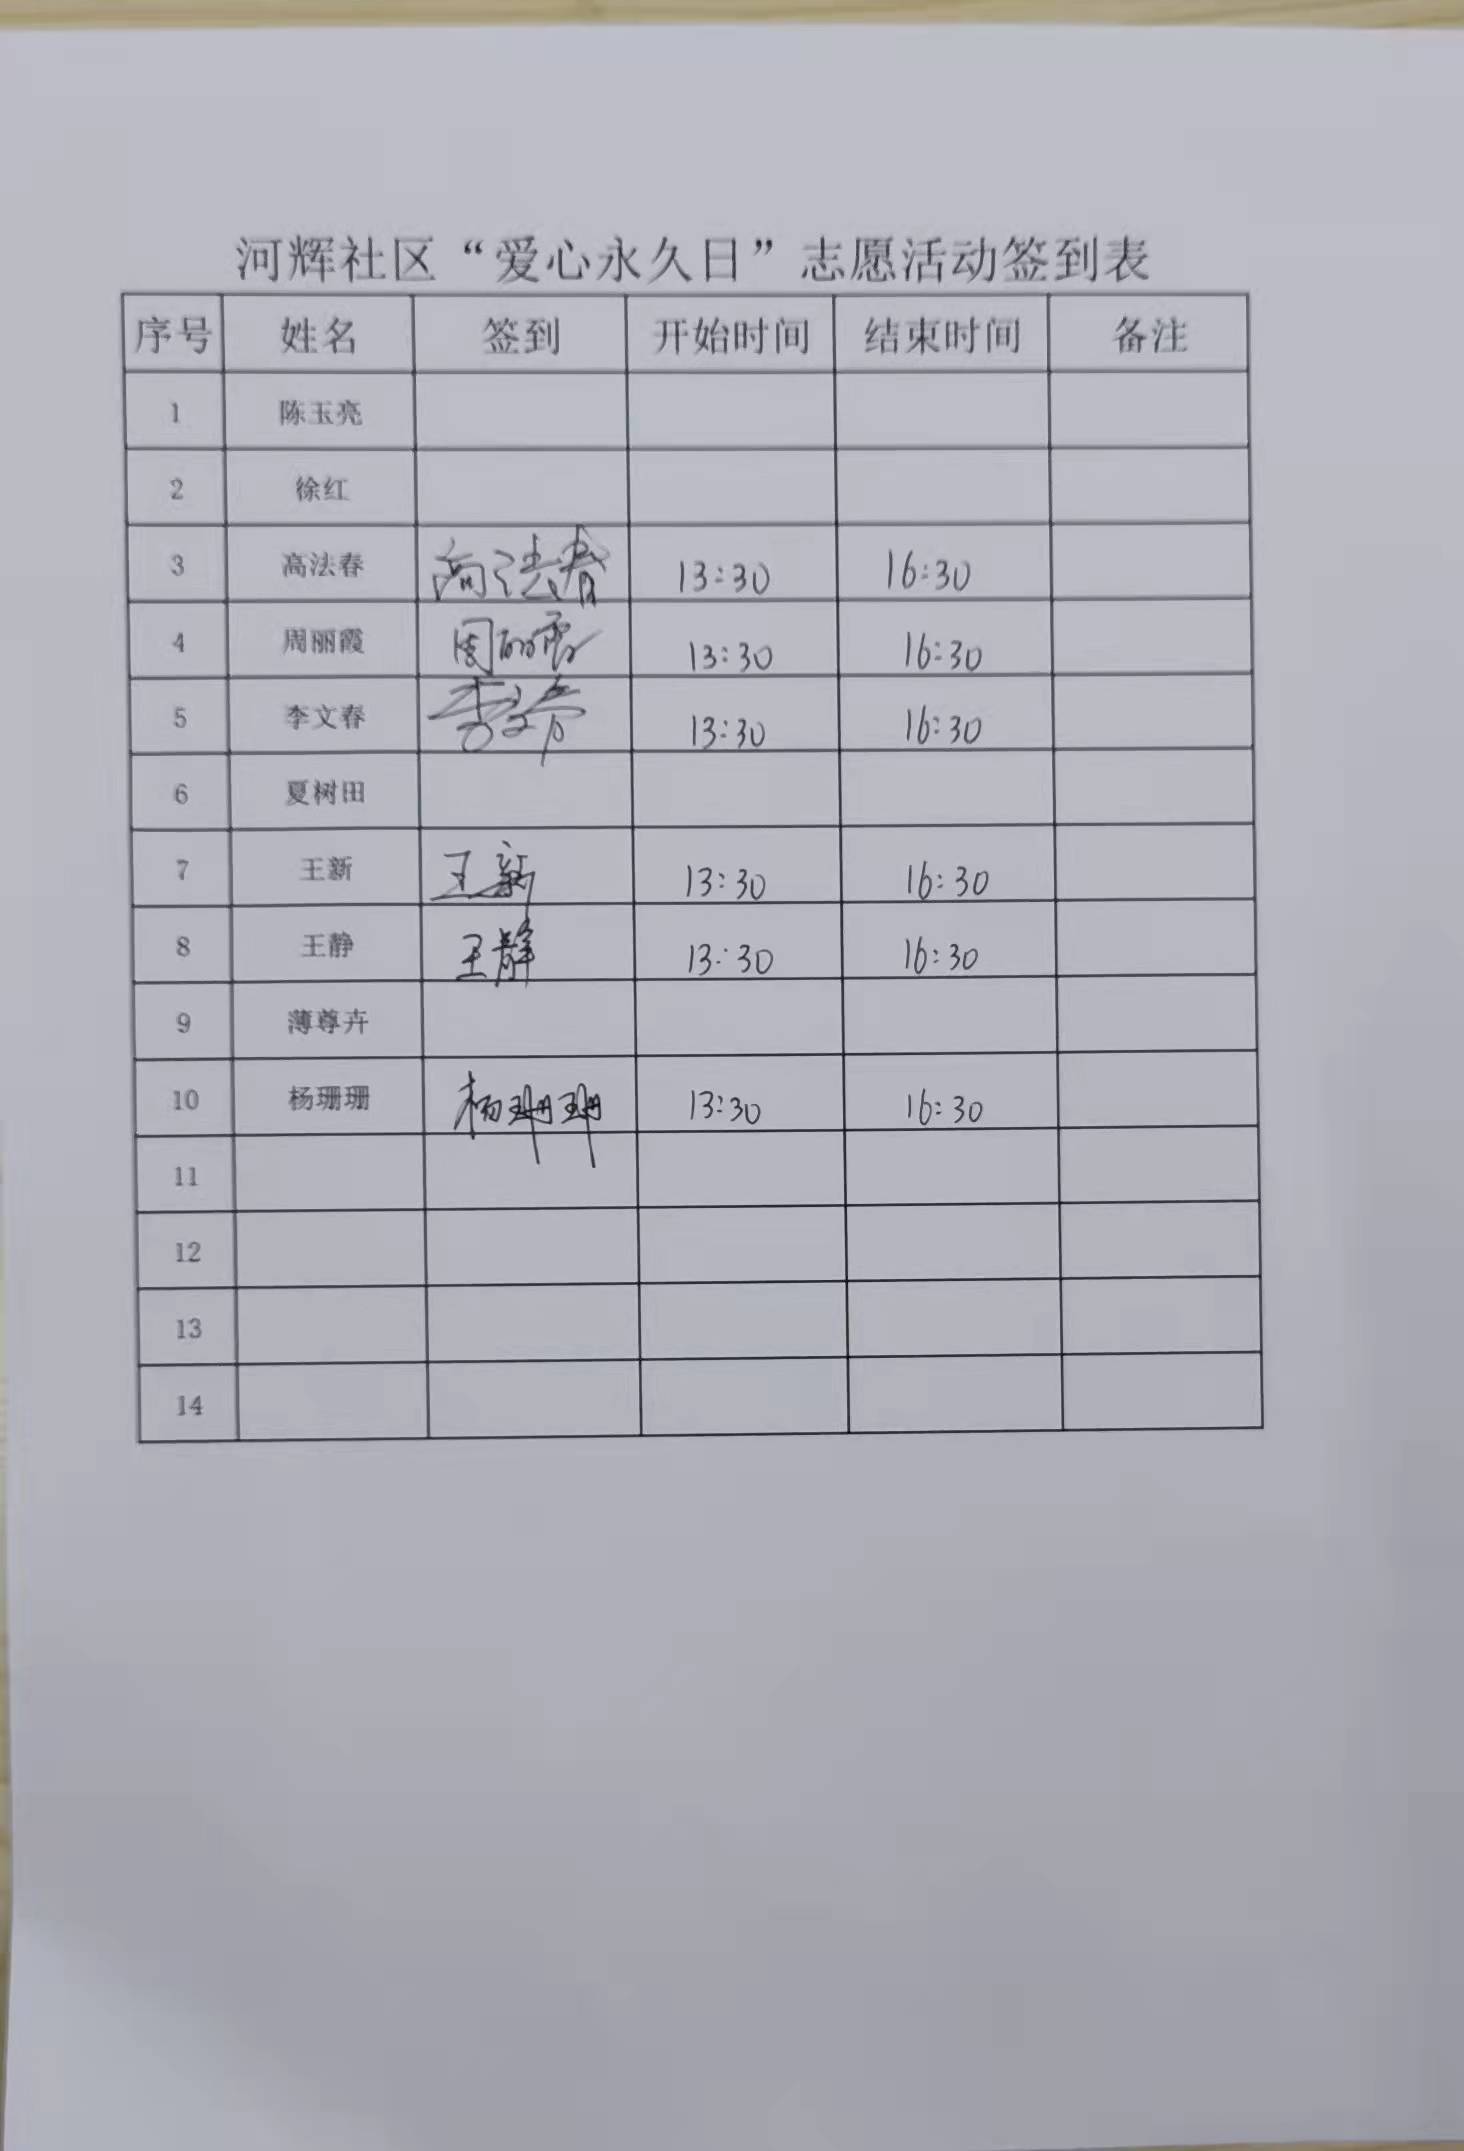 河辉社区“爱心永久日”志愿活动签到表
序号 姓名 签到 开始时间 结束时间 备注
1 陈玉亮
2 徐红
3 高法春 高法春 13:30 16:30
4 周丽霞 周丽霞 13:30 16:30
5 李文春 李文春 13:30 16:30
6 夏树田
7 王新 王新 13:30 16:30
8 王静 王静 13:30 16:30
9 薄尊卉
10 杨珊珊 杨珊珊 13:30 16:30
11
12
13
14